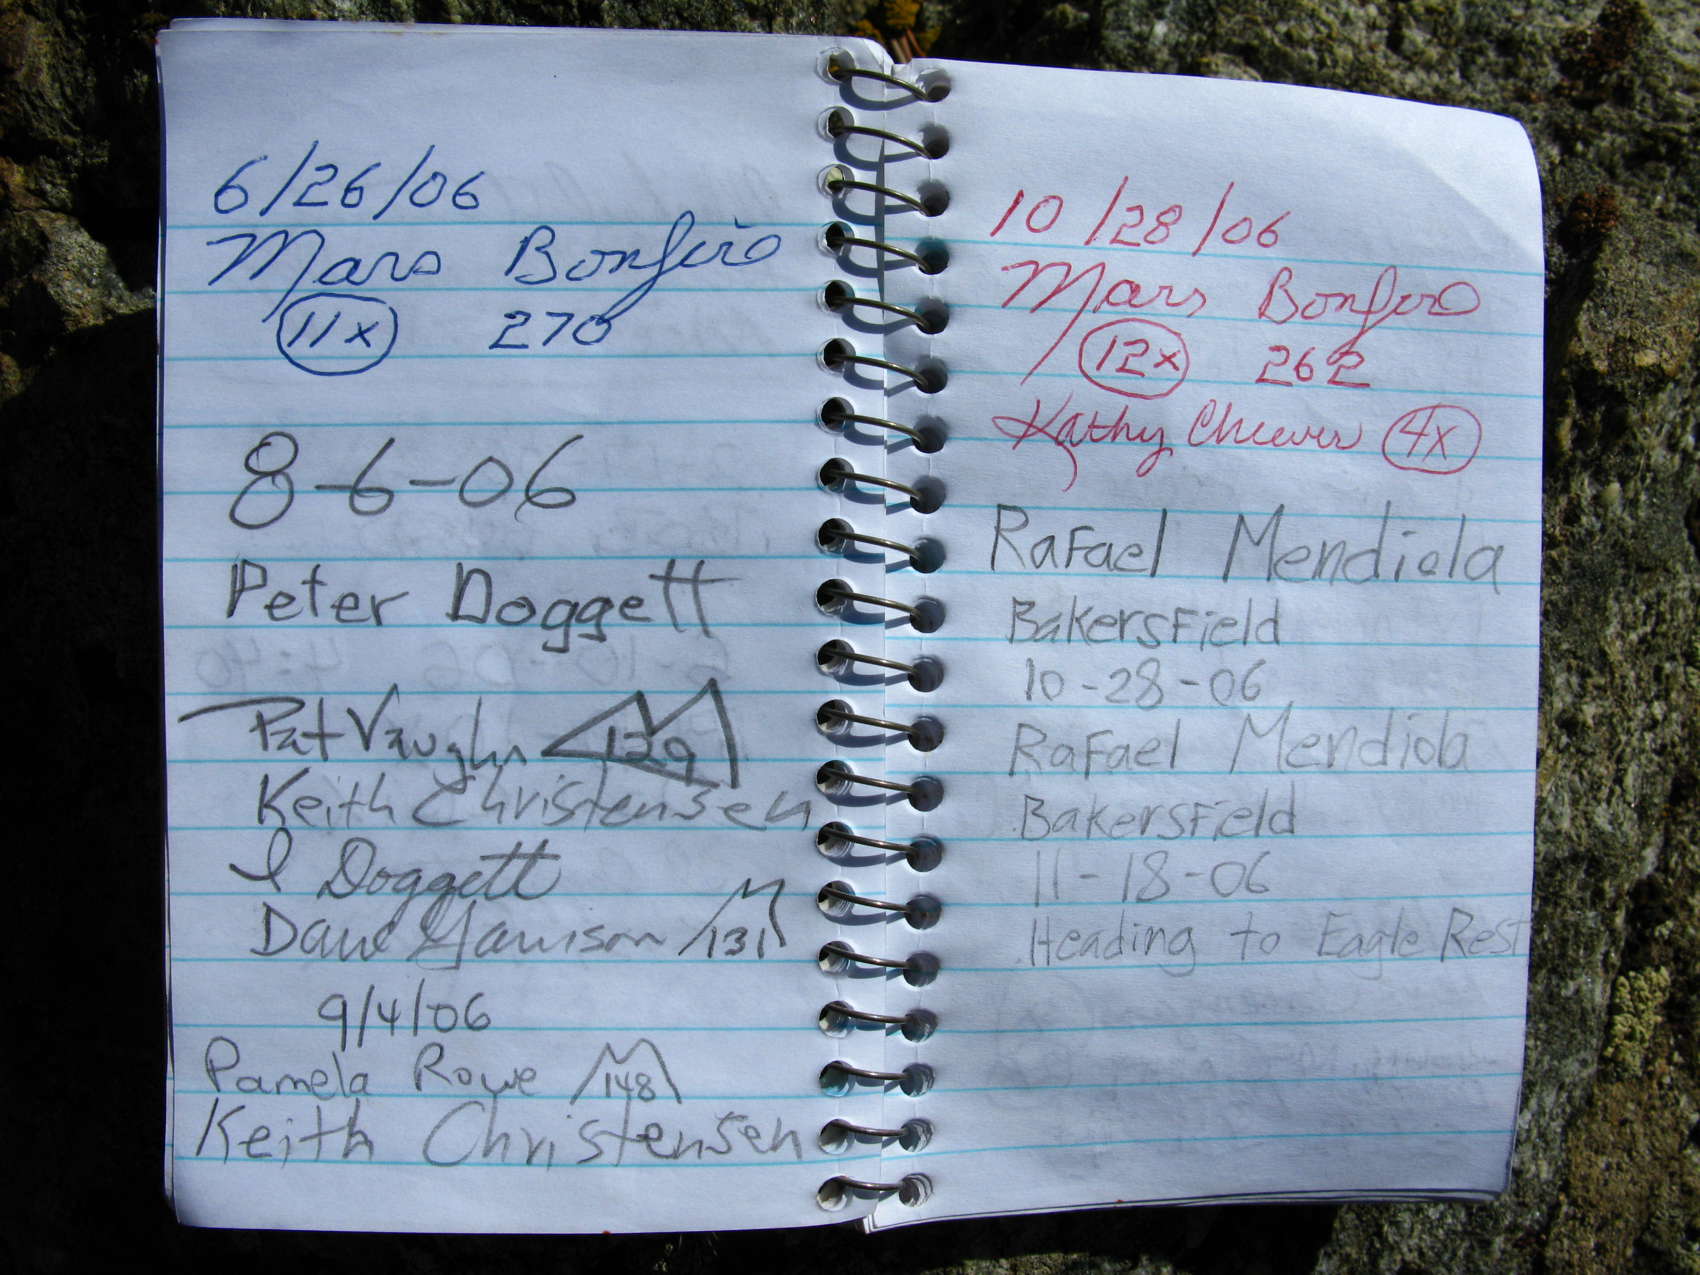 6/26/06
Mars Bonfire
11x 270
8-6-06
Peter Doggett
Pat Vaughn 129
Keith Christensen
I Doggett
Dave Garrison 131
9/4/06
Pamela Rowe 148
Keith Christensen
10/28/06
Mars Bonfire
12x 262
Kathy Cheever 4x
Rafael Mendiola
Bakersfield
10-28-06
Rafael Mendiola
Bakersfield
11-18-06
Heading to Eagle Rest